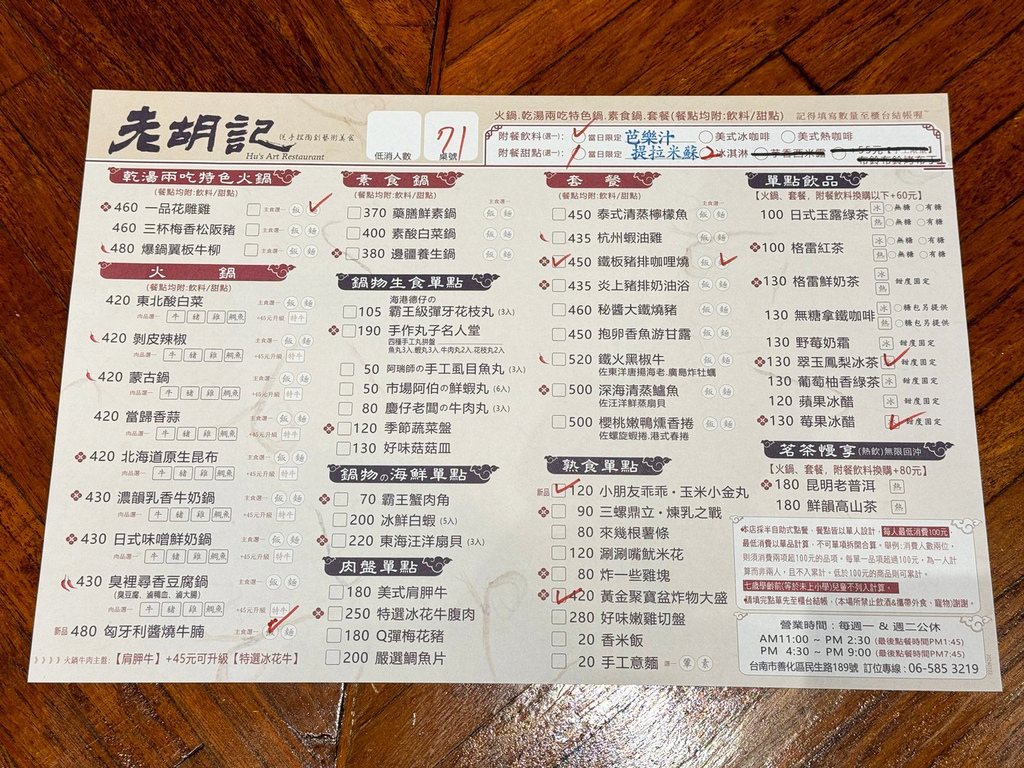 老胡記
從手捏陶到藝術美食
Hu's Art Restaurant
低消人數
71
桌號
火鍋.乾湯兩吃特色鍋.素食鍋.套餐(餐點均附:飲料/甜點) 記得填寫數量至櫃台結帳喔
附餐飲料(選一): 當日限定 芭樂汁 美式冰咖啡 美式熱咖啡
附餐甜點(選一): 1 當日限定 提拉米蘇 2 冰淇淋 芋香西米露
乾湯兩吃特色火鍋
(餐點均附:飲料/甜點)
460 一品花雕雞 主食選一 飯
460 三杯梅香松阪豬 主食選一 飯
480 爆鍋翼板牛柳 主食選一 飯
火鍋
(餐點均附:飲料/甜點)
420 東北酸白菜 主食選一 飯 麵
肉品選一 牛 豬 雞 鯛魚 +45元升級 特牛
420 剝皮辣椒 主食選一 飯 麵
肉品選一 牛 豬 雞 鯛魚 +45元升級 特牛
420 蒙古鍋 主食選一 飯 麵
肉品選一 牛 豬 雞 鯛魚 +45元升級 特牛
420 當歸香蒜 主食選一 飯 麵
肉品選一 牛 豬 雞 鯛魚 +45元升級 特牛
420 北海道原生昆布 主食選一 飯 麵
肉品選一 牛 豬 雞 鯛魚 +45元升級 特牛
430 濃韻乳香牛奶鍋 主食選一 飯 麵
肉品選一 牛 豬 雞 鯛魚 +45元升級 特牛
430 日式味噌鮮奶鍋 主食選一 飯 麵
肉品選一 牛 豬 雞 鯛魚 +45元升級 特牛
430 臭裡尋香豆腐鍋 主食選一 飯 麵
(臭豆腐、滷鴨血、滷大腸)
肉品選一 牛 豬 雞 鯛魚 +45元升級 特牛
新品 480 匈牙利醬燒牛腩 主食選一 飯 麵
》》》》火鍋牛肉主盤:【肩胛牛】+45元可升級【特選冰花牛】
素食鍋
(餐點均附:飲料/甜點)
主食選一
370 藥膳鮮素鍋 飯 麵
400 素酸白菜鍋 飯 麵
380 邊疆養生鍋 飯 麵
鍋物生食單點
海港德仔の
105 霸王級彈牙花枝丸 (3入)
190 手作丸子名人堂
四種手工丸拼盤
魚丸3入.蝦丸3入.牛肉丸2入.花枝丸2入
50 阿瑞師の手工虱目魚丸 (3入)
50 市場阿伯の鮮蝦丸 (6入)
80 慶仔老闆の牛肉丸 (3入)
120 季節蔬菜盤
130 好味菇菇皿
鍋物の海鮮單點
70 霸王蟹肉角
200 冰鮮白蝦 (5入)
220 東海汪洋扇貝 (3入)
肉盤單點
180 美式肩胛牛
250 特選冰花牛腹肉
180 Q彈梅花豬
200 嚴選鯛魚片
套餐
(餐點均附:飲料/甜點)
主食選一
450 泰式清蒸檸檬魚 飯 麵
435 杭州蝦油雞 飯 麵
450 鐵板豬排咖哩燒 飯
435 炎上豬排奶油浴 飯 麵
460 秘醬大鐵燒豬 飯 麵
450 抱卵香魚游甘露 飯 麵
520 鐵火黑椒牛 飯 麵
佐東洋唐揚海老.廣島炸牡蠣
500 深海清蒸鱸魚 飯 麵
佐汪洋鮮蒸扇貝
500 櫻桃嫩鴨燻香捲 飯 麵
佐螺旋蝦捲.港式春捲
熟食單點
新品 120 小朋友乖乖・玉米小金丸
90 三螺鼎立・煉乳之戰
80 來幾根薯條
120 涮涮嘴魷米花
80 炸一些雞塊
420 黃金聚寶盆炸物大盛
280 好味嫩雞切盤
20 香米飯
20 手工意麵 選一 葷 素
單點飲品
【火鍋、套餐，附餐飲料換購以下+60元】
100 日式玉露綠茶 冰 無糖 有糖
熱 無糖 有糖
100 格雷紅茶 冰 無糖 有糖
熱 無糖 有糖
130 格雷鮮奶茶 冰 熱 甜度固定
130 無糖拿鐵咖啡 冰 熱 糖包另提供
130 野莓奶霜 冰 甜度固定
130 翠玉鳳梨冰茶 甜度固定
130 葡萄柚香綠茶 冰 甜度固定
120 蘋果冰醋 冰 甜度固定
130 莓果冰醋 甜度固定
茗茶慢享 (熱飲)無限回沖
【火鍋、套餐，附餐飲料換購+80元】
180 昆明老普洱 熱
180 鮮韻高山茶 熱
本店採半自助式點餐，餐點皆以單人設計，每人最低消費100元
最低消費以單品計算，不可單項拆開合算。舉例:消費人數兩位，
則須消費兩項超100元的品項。每單一品項超過100元，為一人計
算而非兩人，且不入累計。低於100元的商品則可累計。
七歲學齡前(等於未上小學)兒童不列入計算。
請填完點單先至櫃台結帳，(本場所禁止飲酒&攜帶外食、寵物)謝謝。
營業時間：每週一 & 週二公休
AM11:00 ~ PM 2:30 (最後點餐時間PM1:45)
PM 4:30 ~ PM 9:00 (最後點餐時間PM7:45)
台南市善化區民生路189號 訂位專線:06-585 3219